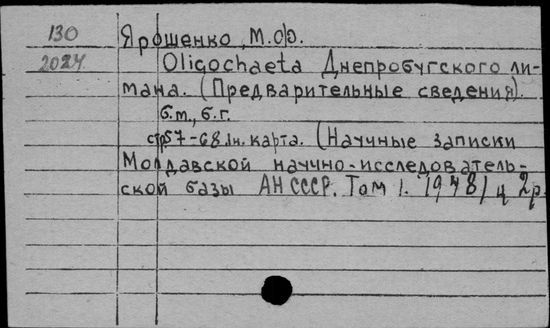 130 Ярошенко, М.Ф.
2024 Oligochaeta Днепробугского ли-
мана. (Предварительные сведения).
б.м., б.г.
стр57-68 1н. карта. (Научные записки
Молдавской научно-исследователь-
ской базы АН СССР. Том 1. 1948/ ц 2р